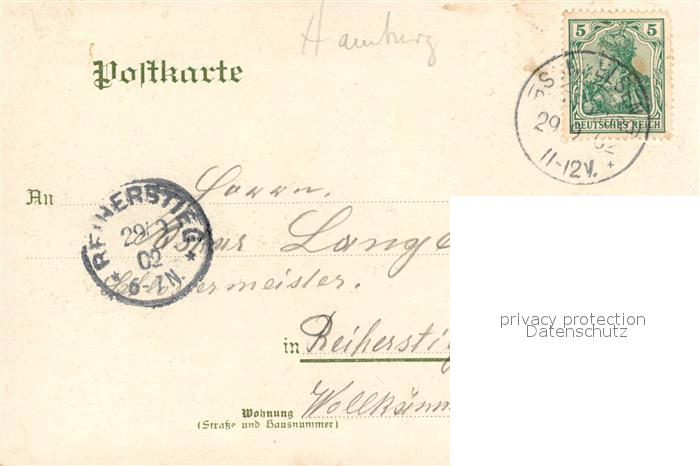 Hamburg
Postkarte
5 5
DEUTSCHES REICH
29
02
11-12V.
An
Herrn
REIHERSTIEG
29
02
6-7N.
Lang
in Reiherstie
Wohnung
(Straße und Hausnummer)
Wollkäm
privacy protection
Datenschutz